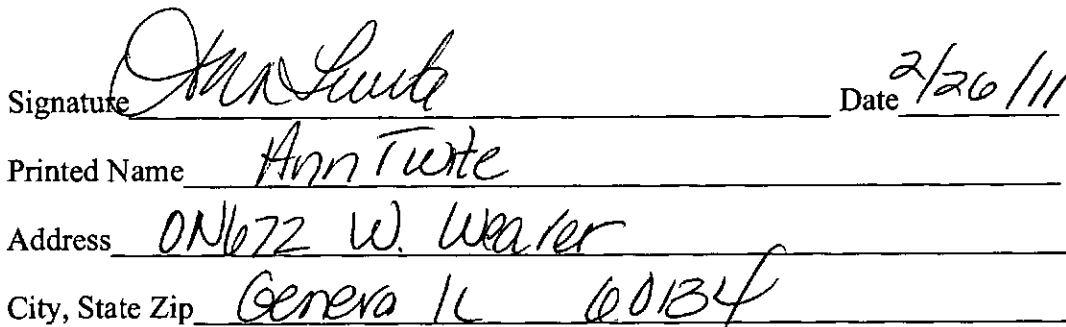 Signature Ann Twite Date 2/26/11
Printed Name Ann Twite
Address 0N672 W. Weaver
City, State Zip Geneva IL 60134